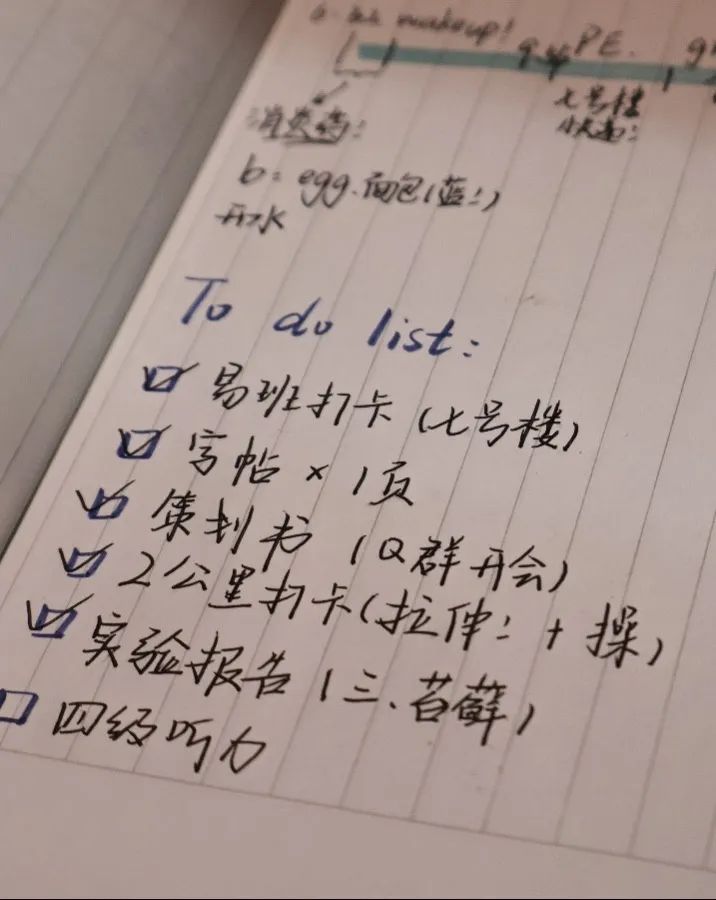 makeup!
PE.
七号楼
消炎药:
b: egg.面包(蓝!)
开水
To do list:
易班打卡 (七号楼)
字帖 × 1页
策划书 (Q群开会)
2公里打卡(拉伸! + 操)
实验报告 (三、苔藓)
四级听力